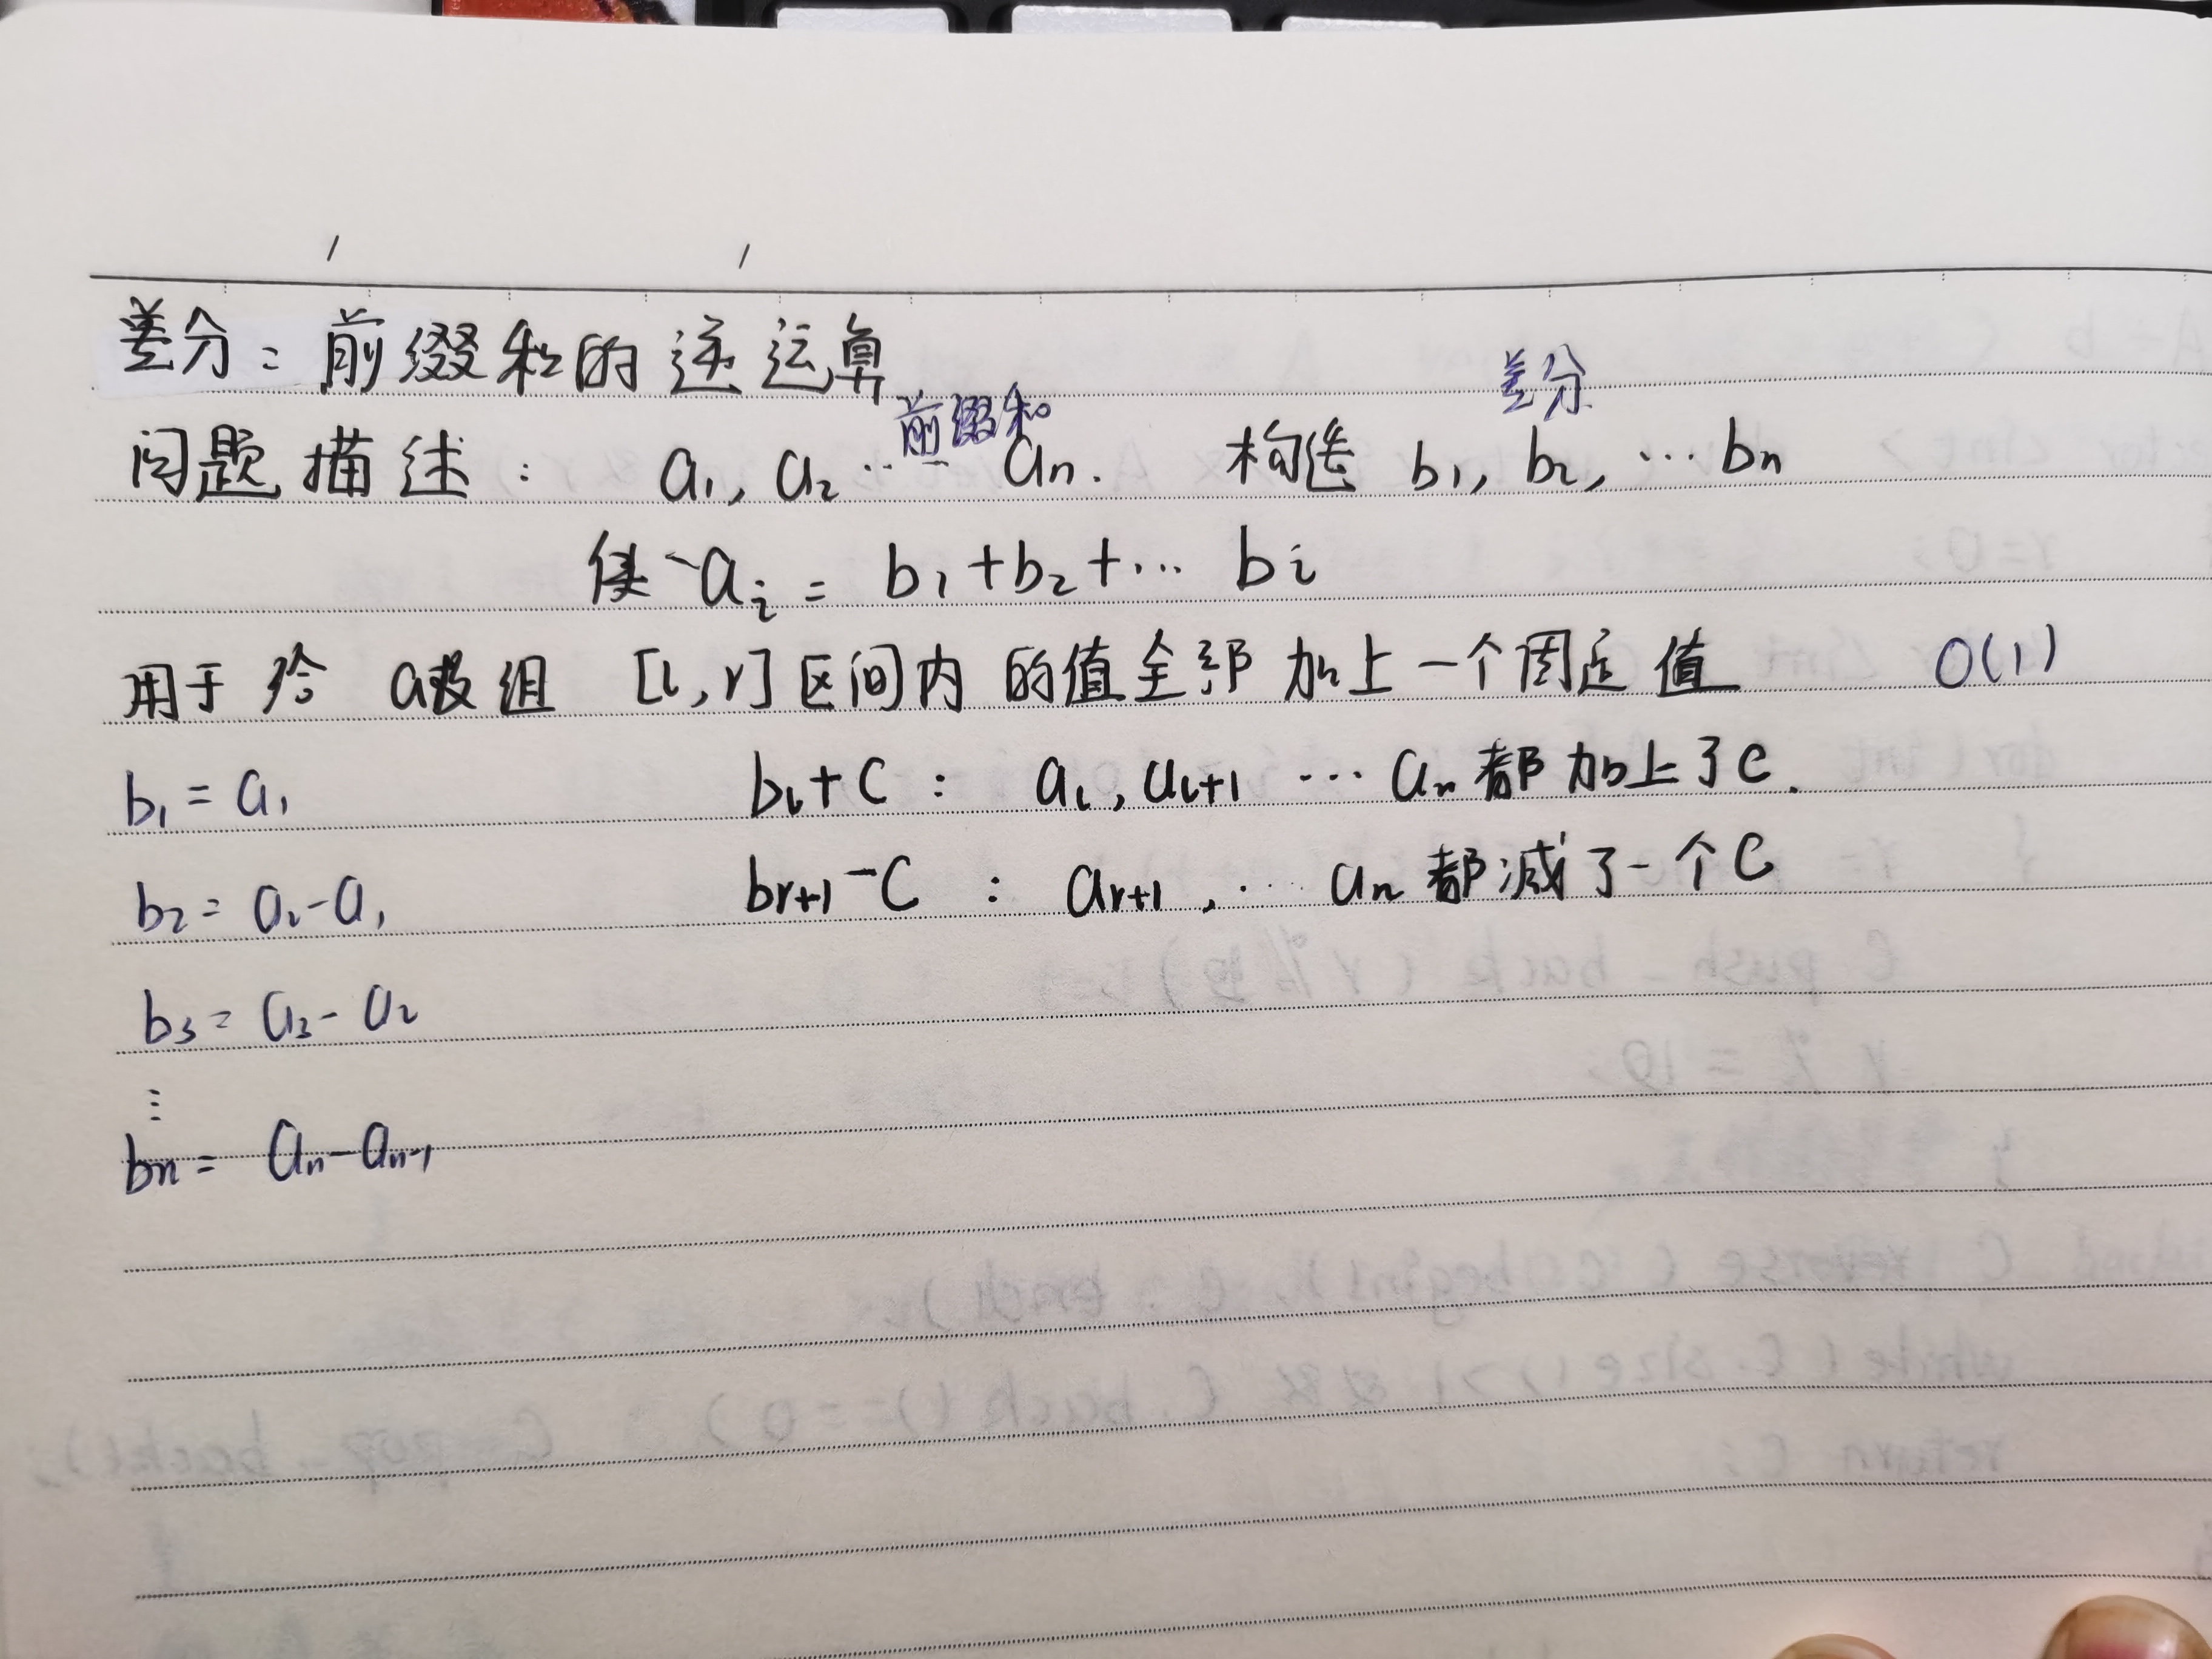 差分：前缀和的逆运算
前缀和 差分
问题描述： a₁, a₂ … aₙ. 构造 b₁, b₂, … bₙ
使 aᵢ = b₁+b₂+… bᵢ
用于给 a数组 [l, r] 区间内的值全部加上一个固定值 O(1)
b₁ = a₁ bₗ+C : aₗ, aₗ₊₁ … aₙ 都加上了C.
b₂ = a₂-a₁ bᵣ₊₁-C : aᵣ₊₁, … aₙ 都减了一个C
b₃ = a₃-a₂
⋮
bₙ = aₙ-aₙ₋₁